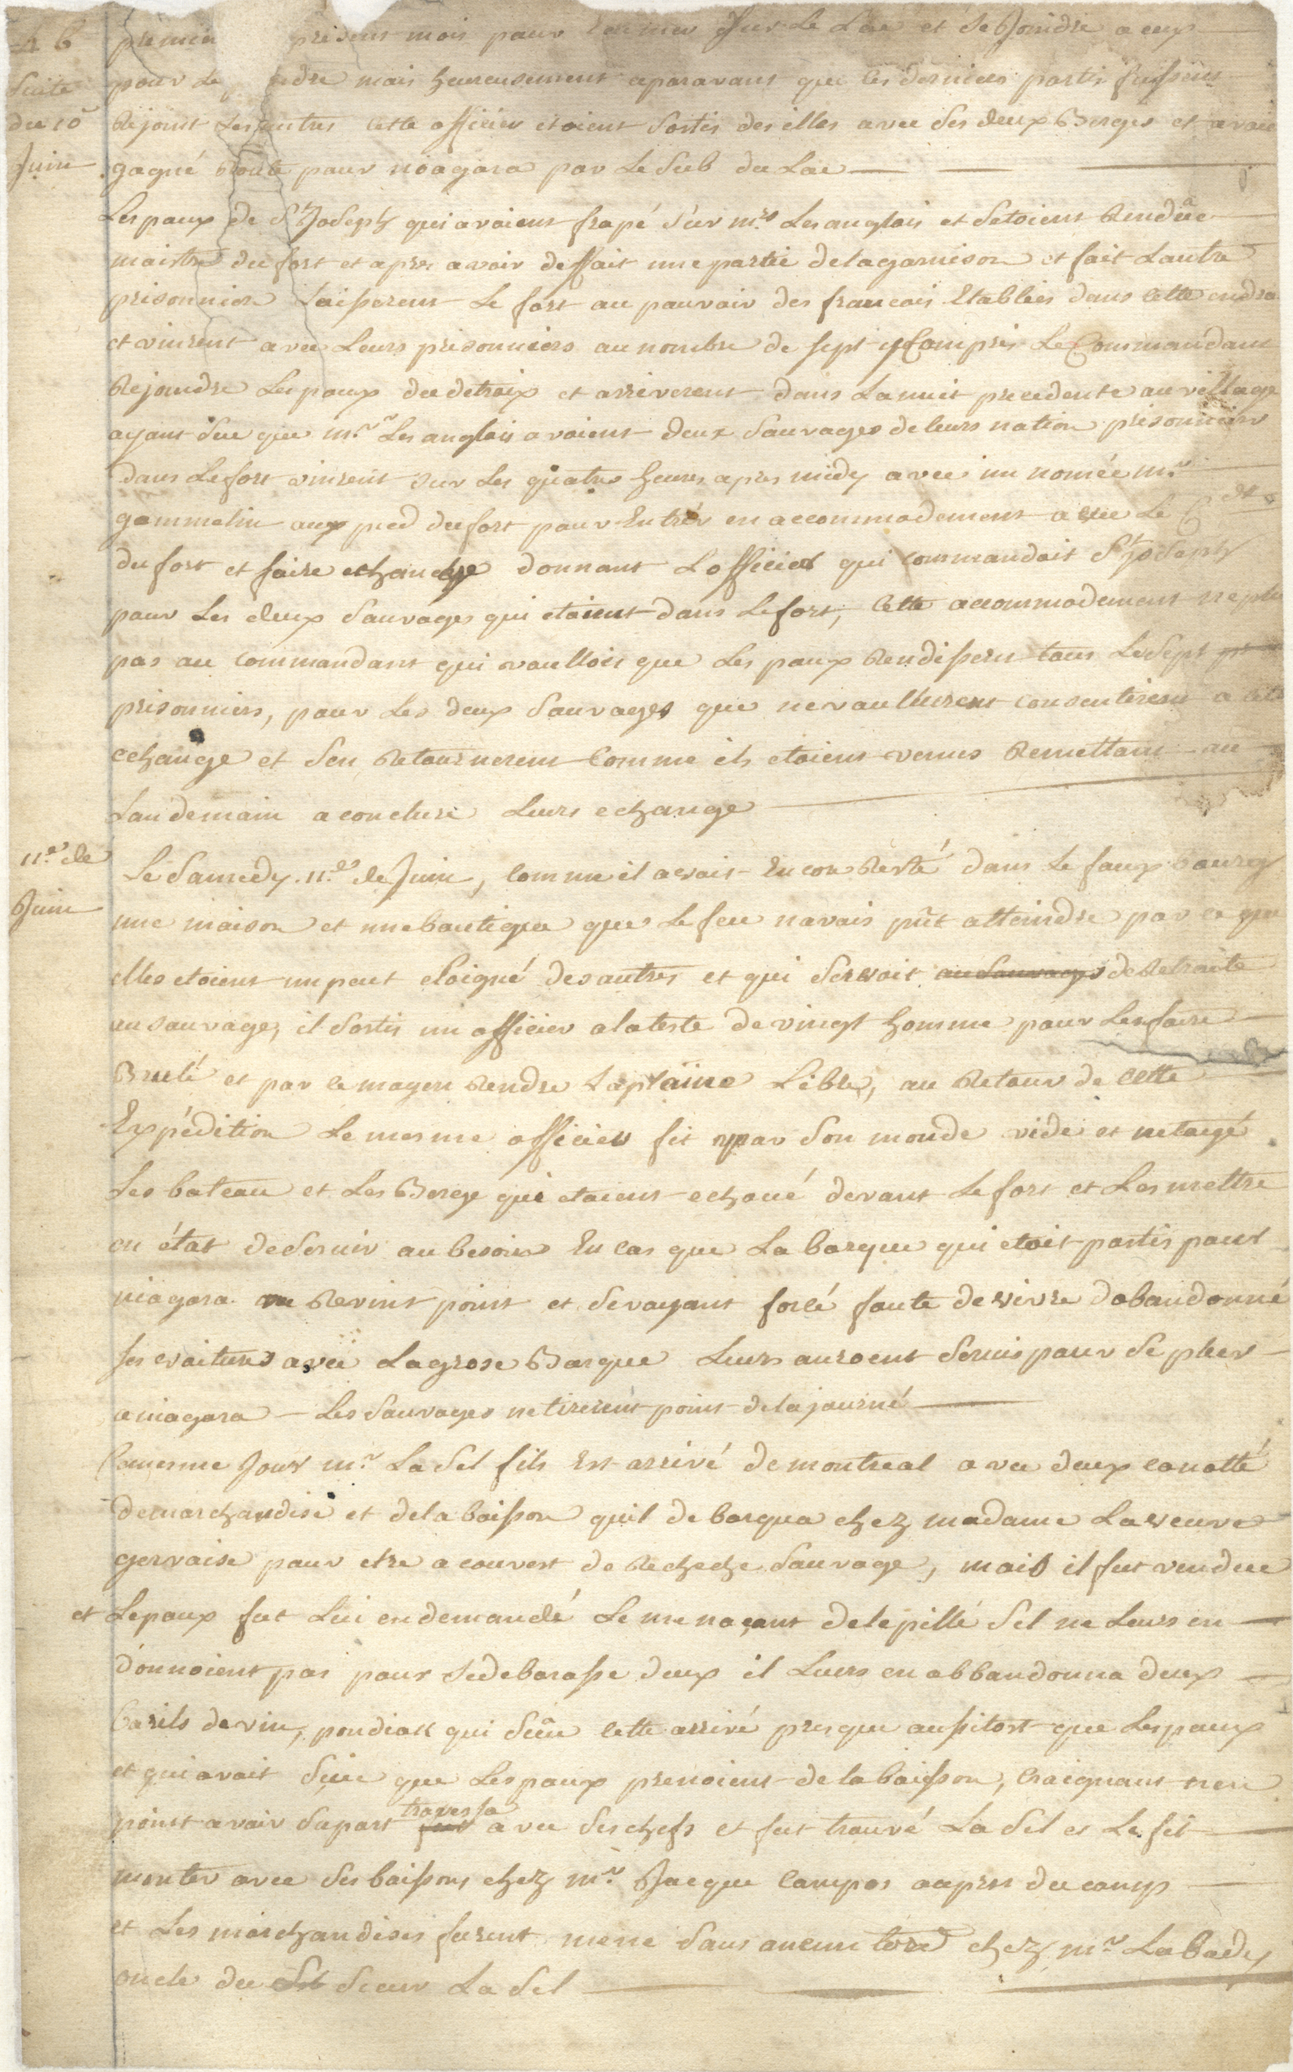 46
Suite
du 10
Juin
premier present mois pour Lenmer Sur Le Lac et se Joindre a eux
pour Le dre mais heureusement aparavant que les derniers partis fussent
Rejoint Les autres Cette officier etoient Sortis des illes avec Ses deux Berges et avoit
gagné Route pour niagara par Le Sud du Lac
Les paux de St Joseph qui avoient frapé Sur mrs Les anglois et Setoient Rendûe
maistre du fort et apres avoir deffait une partie de la garnison et fait Lautre
prisonniere Laisserent Le fort au pouvoir des francois Etablies dans Cette endroit
et vinrent avec Leurs prisonniers au nombre de Sept y Compris Le Commandant
Rejoindre Les paux du detroix et arriverent dans La nuit precedente au village
ayant Sue que mrs Les anglois avoient deux Sauvages de leurs nation prisonniers
dans Le fort vinrent sur Les quatre heures apres midy avec un nomée mr
gammelin aux pied du fort pour Entrér en accommodement avec Le Cdt
du fort et faire echange donnant Lofficier qui commandait St Joseph
pour Les deux Sauvages qui etoient dans Le fort, Cette accommodement ne plut
pas au commandant qui voullois que Les paux Rendissent tous Le Sept
prisonniers, pour Les deux Sauvages que ne voullurent consentirent a cette
echange et Sen Retournerent Comme ils etoient venus Remettant au
Landemain a conclure Leurs echange
11.e de
Juin
Le Samedy 11.e de Juin, Comme il avoit Encore Resté dans Le faux bourg
une maison et une boutique que Le feu navais pût atteindre par ce que
elles etoient un peut eloigné des autres et qui Servoit au Sauvages de Retraite
au sauvages, il Sortis un officier a la teste de vingt homme pour Les faire
Brulé et par ce moyen Rendre La plaine Libre, au Retour de Cette
Expédition Le mesme officier fit par Son monde vidé et netoyé
Les bateau et Les Berge qui etoient echoué devant Le fort et Les mettre
en état de Servir au besoin En cas que La barque qui etoit partis pour
niagara ne Revint point et Se voyant forcé faute de vivre dabandonné
ses voitures avec La grose Barque Leurs auroent Servis pour Se plier
a niagara — Les Sauvages ne tirerent point de la journé
Ce mesme Jour mr La Sel fils Est arrivé de montreal avec deux canotté
de marchandise et de la boisson quil debarqua chez madame La veuve
gervaise pour etre a couvert de Recheche Sauvage, mais il fut vendue
et Le paux fut Lui en demandé Le menaçant de le pillé Sil ne Leurs en
donnoient pas pour Se debarasse deux il Leurs en abbandonna deux
barils de vin, pondiak qui Seüe Cette arrivé presque aussitost que Les paux
et qui avait Suie que Les paux prenoient de la boisson, Craignant nen
point avoir Sa part traversa avec Ses chefs et fut trouvé La Sel et Le fit
monter avec Ses boissons chez mr Jacque Campos aupres du camp
et Les marchandises furent mene Sans aucun tord chez mr La bady
oncle du Sieur La Sel